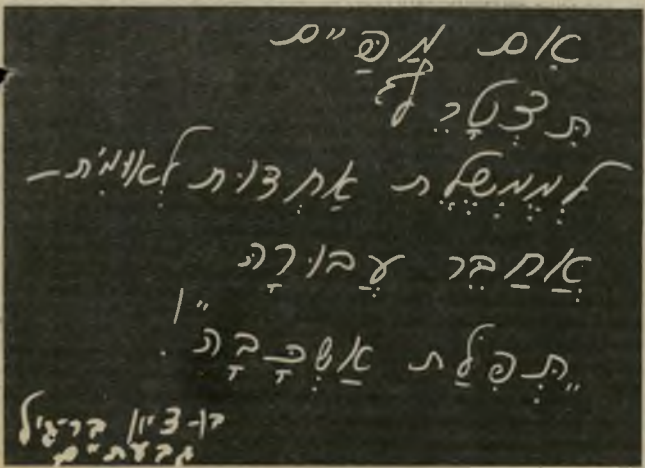 אִם מַפַּ"ם
תִּצְטָרֵף
לְמֶמְשֶׁלֶת אַחְדוּת לְאוּמִּית –
אֲחַבֵּר עֲבוּרָהּ
„תְּפִלַּת אַשְׁכָּבָה"!
בן-ציון בר-גיל
גבעתיים